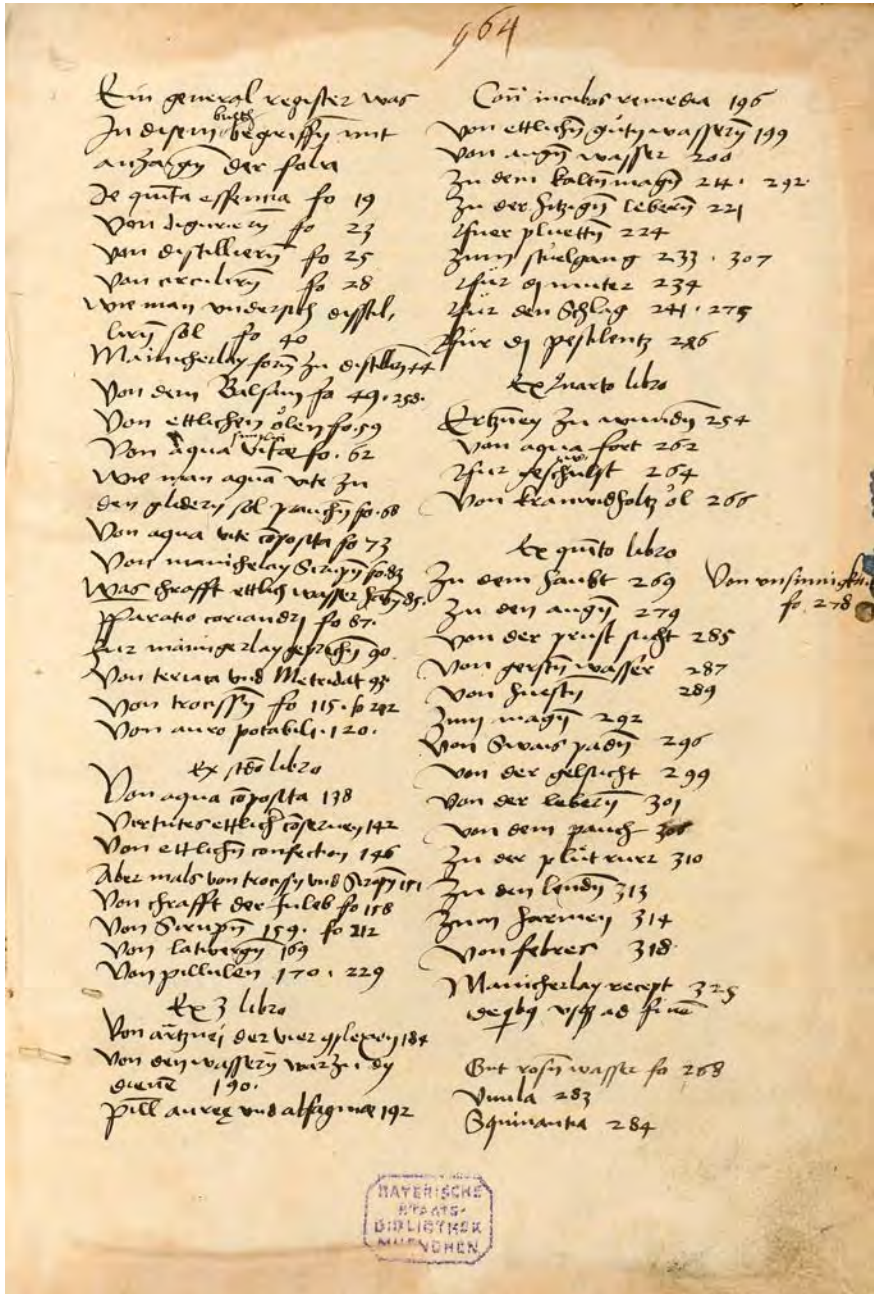 964
Ein general register was
buech
In disem begriffen mit
anzaigung der folia
De quinta essentia fo 19
Von digeriern fo 23
Von distilliern fo 25
Von circulirn fo 28
Wie man undersich distil,
lirn sol fo 40
Mainicherlay form zu distilliern 44
Von dem Balsam fo 49. 258.
Von ettlichen ölen fo. 59
simplici
Von aqua vitae fo. 62
Wie man aqua vite zu
den glidern sol prauchn fo. 68
Von aqua vite composita fo 73
Von manicherlay Siruppn fo 83
Was chrafft ettlich wasser habn 85.
pparatio coriandri fo 87.
Für mainigerlay geprechn 90
Von teriaca und Metridat 95.
Von trocissn fo 115. fo 242
Von auro potabili. 120.
Ex scdo libro
Von aqua composita 138
Virtutes ettlicher conserven 142
Von ettlichn confection 146
Aber mals von trocissn und Siruppn 151
Von chrafft der Juleb fo 158
Von Siruppn 159. fo 212
Von latwergn 169
Von pillulen 170. 229
Ex 3 libro
Von artznei der vier complexion 184
Von den wassern warzu dy
diene 190.
Pill auree und alfagine 192
Con incubos remedia 196
Von ettlichn gutn wassern 199
Von augn wasser 200
Zu dem kaltn magn 244. 292.
Zu der hitzign lebern 221
Fuer pluettn 224
Zum stuelgang 233. 307
Für di mueter 234
Für den Schlag 241. 275
Für di pestilentz 246
Ex Quarto libro
Ertzney zu wundn 254
Von aqua fort 262
Für geschulst 264
Von kranwidholtz öl 266
Ex quinto libro
Zu dem haubt 269
Von unsinnigkeit
fo 278
Zu den augn 279
Von der prust sucht 285
Von gerstn wasser 287
Von huestn 289
Zum magn 292
Von Swais padn 296
Von der gelsucht 299
Von der lebern 301
Von dem pauch 306
Zu der plut rurr 310
Zu den lendn 313
Zum harmen 314
Von febres 318
Mainicherlay recept 325
usque ad fine
Gut rosn wasser fo 268
Uvula 283
Squinantia 284
BAYERISCHE
STAATS-
BIBLIOTHEK
MUENCHEN